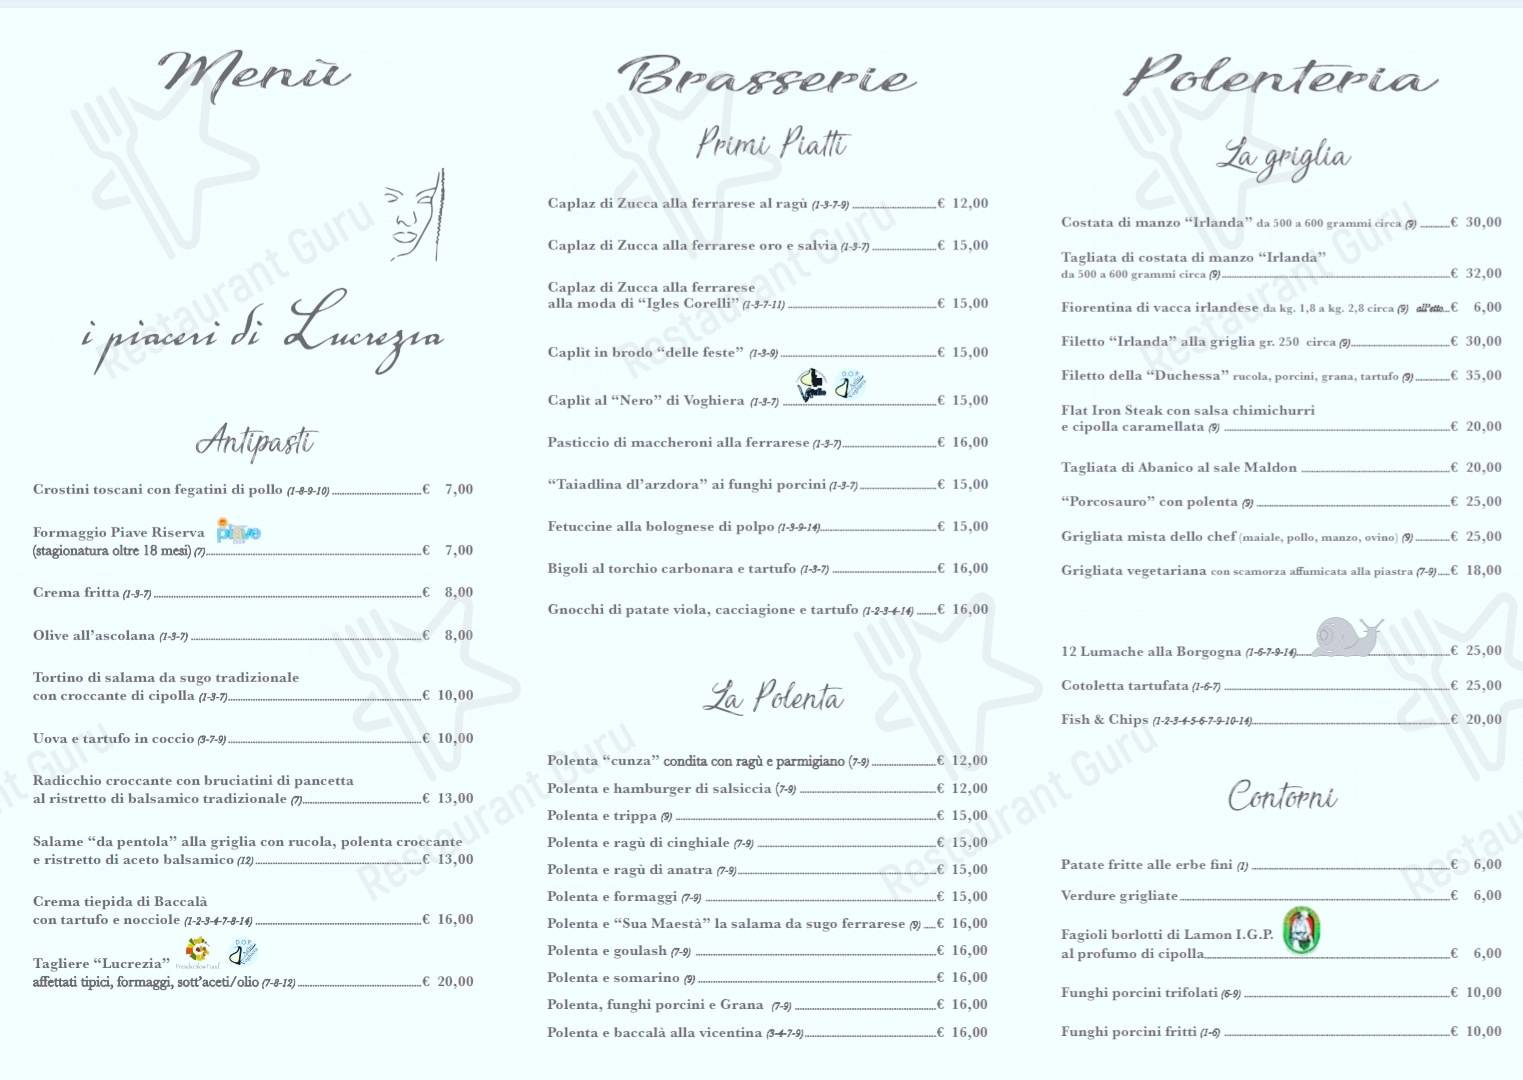 Menù
i piaceri di Lucrezia
Antipasti
Crostini toscani con fegatini di pollo (1-8-9-10) € 7,00
Formaggio Piave Riserva piave
(stagionatura oltre 18 mesi) (7) € 7,00
Crema fritta (1-3-7) € 8,00
Olive all’ascolana (1-3-7) € 8,00
Tortino di salama da sugo tradizionale
con croccante di cipolla (1-3-7) € 10,00
Uova e tartufo in coccio (3-7-9) € 10,00
Radicchio croccante con bruciatini di pancetta
al ristretto di balsamico tradizionale (7) € 13,00
Salame “da pentola” alla griglia con rucola, polenta croccante
e ristretto di aceto balsamico (12) € 13,00
Crema tiepida di Baccalà
con tartufo e nocciole (1-2-3-4-7-8-14) € 16,00
Tagliere “Lucrezia” D.O.P.
affettati tipici, formaggi, sott’aceti/olio (7-8-12) € 20,00
Brasserie
Primi Piatti
Caplaz di Zucca alla ferrarese al ragù (1-3-7-9) € 12,00
Caplaz di Zucca alla ferrarese oro e salvia (1-3-7) € 15,00
Caplaz di Zucca alla ferrarese
alla moda di “Igles Corelli” (1-3-7-11) € 15,00
Caplìt in brodo “delle feste” (1-3-9) € 15,00
D.O.P.
Caplìt al “Nero” di Voghiera (1-3-7) € 15,00
Pasticcio di maccheroni alla ferrarese (1-3-7) € 16,00
“Taiadlina dl’arzdora” ai funghi porcini (1-3-7) € 15,00
Fetuccine alla bolognese di polpo (1-3-9-14) € 15,00
Bigoli al torchio carbonara e tartufo (1-3-7) € 16,00
Gnocchi di patate viola, cacciagione e tartufo (1-2-3-4-14) € 16,00
La Polenta
Polenta “cunza” condita con ragù e parmigiano (7-9) € 12,00
Polenta e hamburger di salsiccia (7-9) € 12,00
Polenta e trippa (9) € 15,00
Polenta e ragù di cinghiale (7-9) € 15,00
Polenta e ragù di anatra (7-9) € 15,00
Polenta e formaggi (7-9) € 15,00
Polenta e “Sua Maestà” la salama da sugo ferrarese (9) € 16,00
Polenta e goulash (7-9) € 16,00
Polenta e somarino (9) € 16,00
Polenta, funghi porcini e Grana (7-9) € 16,00
Polenta e baccalà alla vicentina (3-4-7-9) € 16,00
Polenteria
La griglia
Costata di manzo “Irlanda” da 500 a 600 grammi circa (9) € 30,00
Tagliata di costata di manzo “Irlanda”
da 500 a 600 grammi circa (9) € 32,00
Fiorentina di vacca irlandese da kg. 1,8 a kg. 2,8 circa (9) all’etto € 6,00
Filetto “Irlanda” alla griglia gr. 250 circa (9) € 30,00
Filetto della “Duchessa” rucola, porcini, grana, tartufo (9) € 35,00
Flat Iron Steak con salsa chimichurri
e cipolla caramellata (9) € 20,00
Tagliata di Abanico al sale Maldon € 20,00
“Porcosauro” con polenta (9) € 25,00
Grigliata mista dello chef (maiale, pollo, manzo, ovino) (9) € 25,00
Grigliata vegetariana con scamorza affumicata alla piastra (7-9) € 18,00
12 Lumache alla Borgogna (1-6-7-9-14) € 25,00
Cotoletta tartufata (1-6-7) € 25,00
Fish & Chips (1-2-3-4-5-6-7-9-10-14) € 20,00
Contorni
Patate fritte alle erbe fini (1) € 6,00
Verdure grigliate € 6,00
Fagioli borlotti di Lamon I.G.P.
al profumo di cipolla € 6,00
Funghi porcini trifolati (6-9) € 10,00
Funghi porcini fritti (1-6) € 10,00
Restaurant Guru
Restaurant Guru
Restaurant Guru
nt Guru
Restaurant Guru
Restaurant Guru
Restau